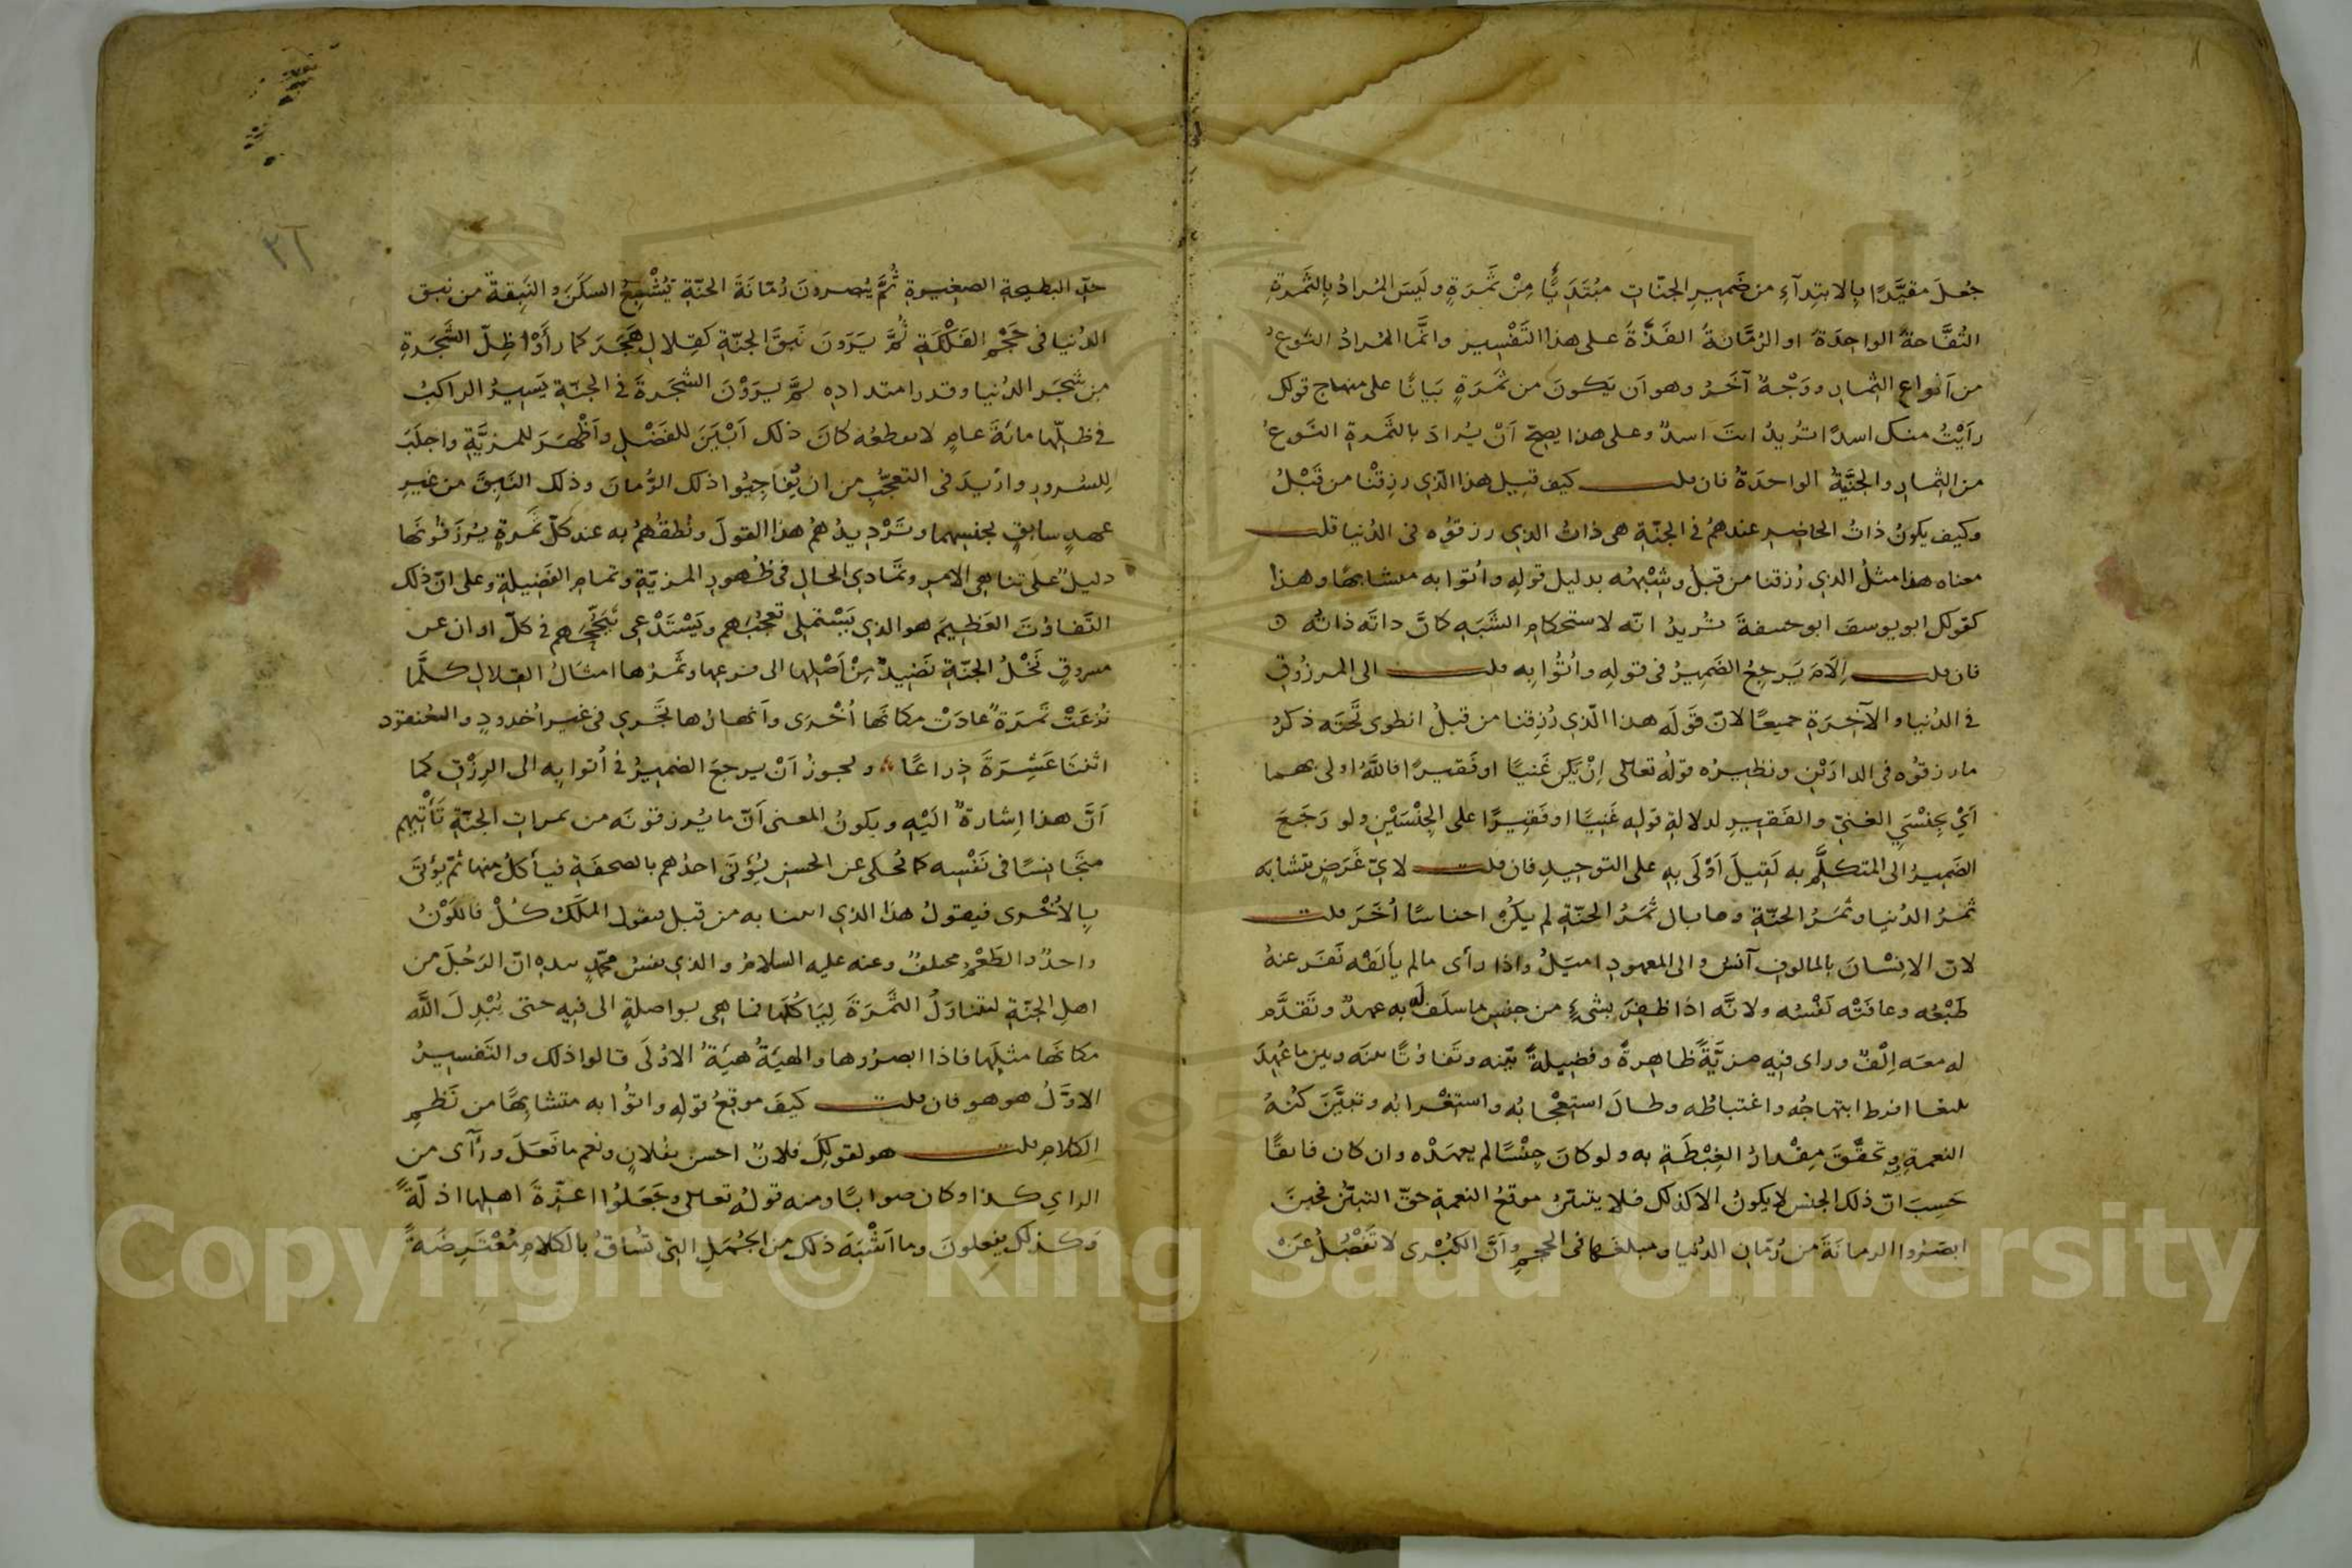 جُعلَ مقيَّدًا بِالابتِدآءِ من ضَميرِ الجنّاتِ مبُتَدَيًّا مِنْ ثَمَرَةٍ ولَيسَ المُرادُ بِالثَمَرةِ
التُفَّاحةُ الواحِدَةُ او الرُمَّانةُ الفَذَّةُ على هذا التَفْسِير وانَّما المُرادُ النَّوعُ
من اَنواعِ الثِمار ووَجْهٌ آخَرُ وهو اَن يكونَ من ثَمَرَةٍ بَيانًا على منهاج قولك
رَاَيْتُ منك اسدًا تُريدُ انتَ اسدٌ وعلى هذا يصحّ اَنْ يُرادَ بالثَّمرةِ النَّوعُ
من الثِمارِ والجَنَّيةُ الواحدَةُ فان قلت كيف قيل هذا الّذي رزقْنا من قَبْلُ
وكيف يكونُ ذاتُ الحاضِر عندهُم في الجنّةِ هي ذاتُ الذي رزقوُه فى الدُنيا قلت
معناه هذا مثلُ الذي رُزقنا من قبلُ وشَبْهُه بدليل قولِهِ واُتوا به متشابهًا وهذا
كقولك ابو يوسفَ ابو حنيفةَ تُريدُ انّه لاستحكامِ الشَبَهِ كانَّ ذاتَه ذاتُه
فان قلت اِلَامَ يَرجِعُ الضَمِيرُ فى قولِهِ واُتُوا بِه قلت الى المرزُوقِ
في الدُنيا والآخِرَةِ جميعًا لانّ قَولَه هذا الّذي رُزِقنا من قبلُ انطوى تَحتَه ذكرُ
ما رزقوُه فى الدارَيْنِ ونظيرُه قولُه تعالى اِنْ يَكن غَنيًّا او فَقيرًا فاللَّهُ اولى بهما
اَيْ بجِنْسَيِ الغنيّ والفَقيرِ لدلالةِ قولِه غَنِيًّا او فَقِيرًا على الجِنْسَيْنِ ولو رَجَعَ
الضَميرُ الى المتكلَّمِ به لَقِيلَ اَوْلَى بِهِ على التوحيدِ فان قلت لايّ غَرَضٍ يتشابه
ثَمرُ الدُنيا وثَمَرُ الجنّةِ وما بال ثَمَرُ الجنّةِ لم يكُنْ اجناسًا اُخَرَ قلت
لانّ الانِسْانَ بالمالوفِ آنسُ والى المعهودِ اميَلُ واذا رأى مالم يألَفْه نَفَرَ عنهُ
طَبْعُه وعافَتْه نَفْسُه ولانَّه اذا ظفِرَ بشىءٍ من جنسِ ما سلَف لَه به عهدٌ وتَقدَّم
له معَه اِلْفٌ وراى فيه مزيَّةً ظاهِرةً وفضيلةً بيّنه وتَفاوتًا بينَه وبين ما عُهِدَ
بليغا افرط ابتهاجُه واغتباطُه وطالَ استِعْجابُه واستغْرابُه وتبيَّنَ كُنْهُ
النعمةِ وتحقَّقَ مِقْدارُ الغِبْطَةِ به ولو كانَ جِنْسًا لم يعهَدْه وان كان فايقًا
حَسِبَ انّ ذلك الجنس لا يكونُ الا كذلك فلا يتبيّنُ موقعُ النعمةِ حقّ التبيّن فحينَ
ابصَرُوا الرمانَةَ من رُمّانِ الدُنيا ومبلغَها فى الحجمِ واَنَّ الكُبْرى لا تَفْضُلُ عَنْ
حدِّ البطيخةِ الصغيرةِ ثُمَّ يُبصرونَ رُمّانَةَ الجنّةِ تُشْبِعُ السكَنَ والنَبِقةَ من نبق
الدُنيا فى حَجْمِ الفَلْكَةِ ثُمَّ يَرَونَ نَبِقَ الجنّةِ كقِلالِ هَجَرَ كما رأَوْا ظِلّ الشَجَرةِ
من شَجَر الدُنيا وقدر امتدادِه ثمَّ يرَوْنَ الشجَرةَ في الجنّةِ يَسيرُ الراكبُ
في ظلّها مائةَ عامٍ لا يقطعُه كانَ ذلك اَبْيَنَ للفَضْلِ واَظْهَرَ للمزيَّةِ واجلَبَ
لِلسُرورِ وازيدَ فى التعجّبِ من ان يُفَاجِئُوا ذلك الرُمانَ وذلك النَبِقَ من غيرِ
عهدٍ سابقٍ بجنسِهما وتَرْدِيدُهُم هذا القولَ ونُطقُهُم به عند كلّ ثَمَرةٍ يُرْزَقُونَها
دليلٌ على تناهي الامرِ وتَمادي الحالِ فى ظُهورِ المزيّةِ وتمامِ الفَضِيلةِ وعلى انّ ذلك
التَفاوُتَ العَظيمَ هو الذي يَسْتملي تعجُّبَهم ويَسْتَدْعي تَبَجُّحَهم في كلّ اوان عن
مسروقٍ نَخْلُ الجنّةِ نَضيدٌ مِنْ اَصْلِها الى فرعِها وثَمَرُها امثالُ القِلالِ كلَّما
نُزعَتْ ثَمَرَةٌ عادَتْ مكانَها اُخْرَى واَنهارُها تَجْري فى غيرِ اُخدودٍ والعُنقود
اثنتا عَشْرَةَ ذِراعًا ويجوزُ اَنْ يرجعَ الضميرُ في اُتوا بِه الى الرِزْقِ كما
اَنَّ هذا اِشارةٌ اليْهِ ويكونُ المعنى اَنّ ما يُرزقونَه من ثمراتِ الجنّةِ يَأْتيهم
متَجانِسًا فى نَفْسِه كما يُحكى عن الحسنِ يُؤتَى احدُهم بالصحفَةِ فيأكلُ منها ثمّ يؤتَى
بِالاُخْرى فيقولُ هذا الذي اتينا به من قبل فيقول المَلَكُ كُلْ فاللَوْنُ
واحدٌ والطَعْمُ مختلفٌ وعنه عليه السلامُ والذي نفسُ محمّدٍ بيده انّ الرَجُلَ من
اهلِ الجنّةِ ليتناوَلُ الثَمَرَةَ لِيَأكُلَها فما هِى بواصلةٍ الى فِيهِ حتى يُبْدِلَ اللَّه
مكانَها مثلَها فاذا ابصرُوها والهيئةُ هيئةُ الاوُلَى قالوا ذلك والتَفسيرُ
الاوَّلُ هو هو فان قلت كيفَ موقعُ قولِهِ واتُوا به متشابِهًا من نَظمِ
الكلامِ قلت هو كقولكَ فلانٌ احسن بفُلانٍ ونِعم ما فَعَلَ ورَأى من
الراي كذا وكان صوابًا ومنه قولُه تعالى وجَعَلُوا اعزّةَ اهلِها اذلَّةً
وكذلك يفعلونَ وما اَشْبَهَ ذلك من الجُمَلِ التي تُساقُ بالكلامِ مُعْتَرِضَةً
Copyright © King Saud University